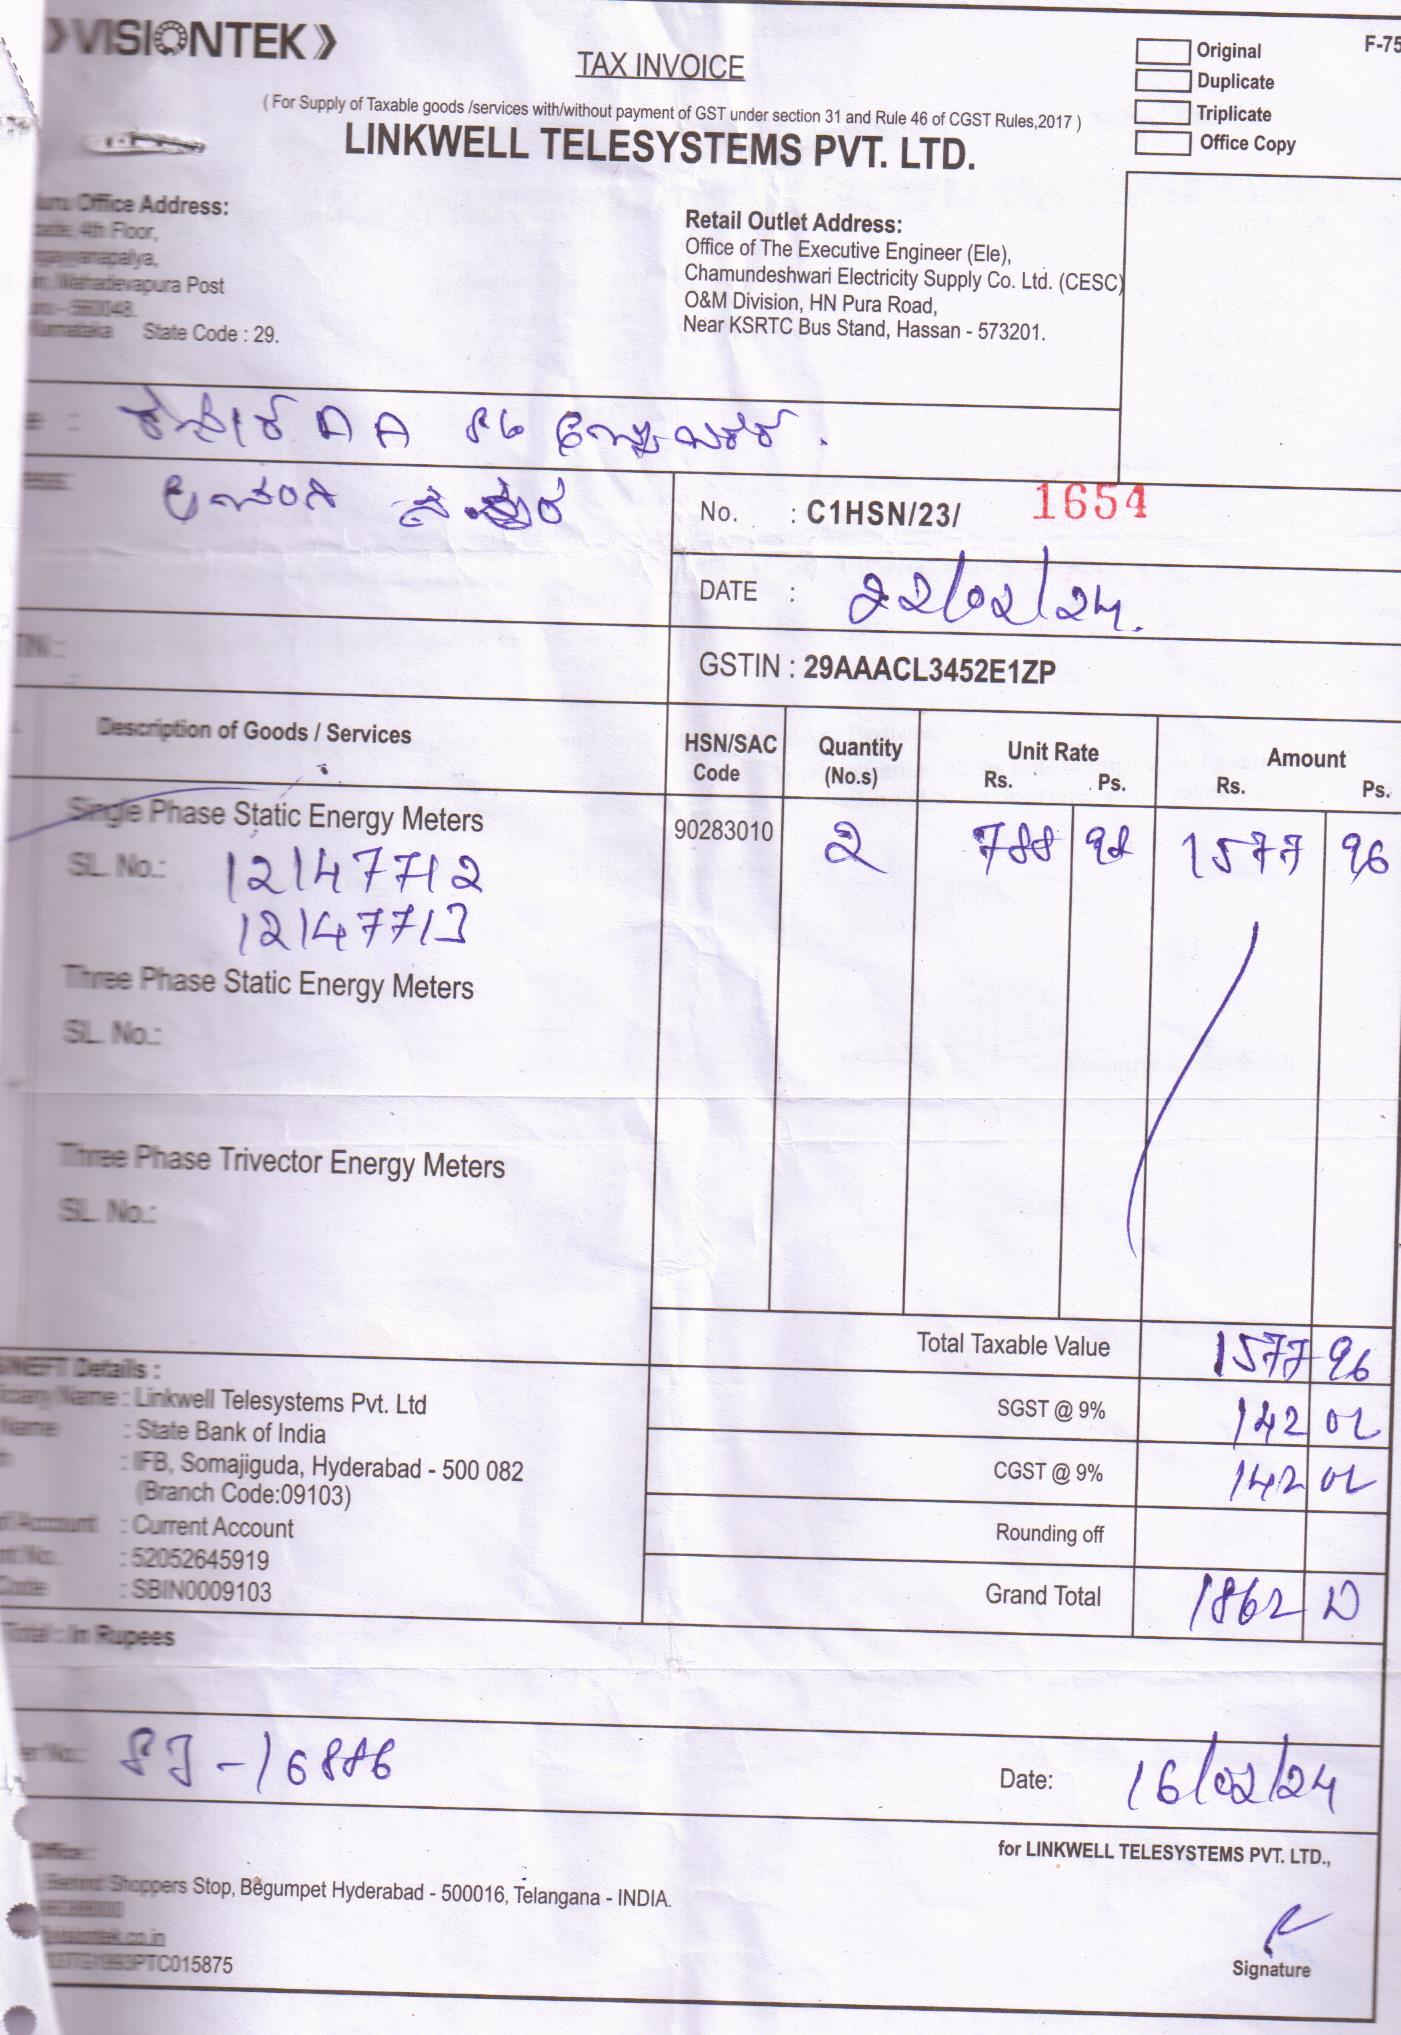 VISIONTEK
TAX INVOICE
Original
Duplicate
Triplicate
Office Copy
F-75
( For Supply of Taxable goods /services with/without payment of GST under section 31 and Rule 46 of CGST Rules,2017 )
LINKWELL TELESYSTEMS PVT. LTD.
Office Address:
4th Floor,
Mahadevapura Post
- 560048.
Karnataka State Code : 29.
Retail Outlet Address:
Office of The Executive Engineer (Ele),
Chamundeshwari Electricity Supply Co. Ltd. (CESC)
O&M Division, HN Pura Road,
Near KSRTC Bus Stand, Hassan - 573201.
No. : C1HSN/23/ 1654
DATE : 22/02/24.
GSTIN : 29AAACL3452E1ZP
Description of Goods / Services
HSN/SAC Code
Quantity (No.s)
Unit Rate Rs. Ps.
Amount Rs. Ps.
Single Phase Static Energy Meters 90283010 2 788 98 1577 96
SL. No.: 12147712
12147713
Three Phase Static Energy Meters
SL. No.:
Three Phase Trivector Energy Meters
SL. No.:
Total Taxable Value 1577 96
SGST @ 9% 142 02
CGST @ 9% 142 02
Rounding off
Grand Total 1862 00
Details :
Name : Linkwell Telesystems Pvt. Ltd
Name : State Bank of India
: IFB, Somajiguda, Hyderabad - 500 082
(Branch Code:09103)
Account : Current Account
No. : 52052645919
Code : SBIN0009103
Total : In Rupees
No.: SJ-16886
Date: 16/02/24
for LINKWELL TELESYSTEMS PVT. LTD.,
Office :
Behind Shoppers Stop, Begumpet Hyderabad - 500016, Telangana - INDIA.
1993PTC015875
Signature